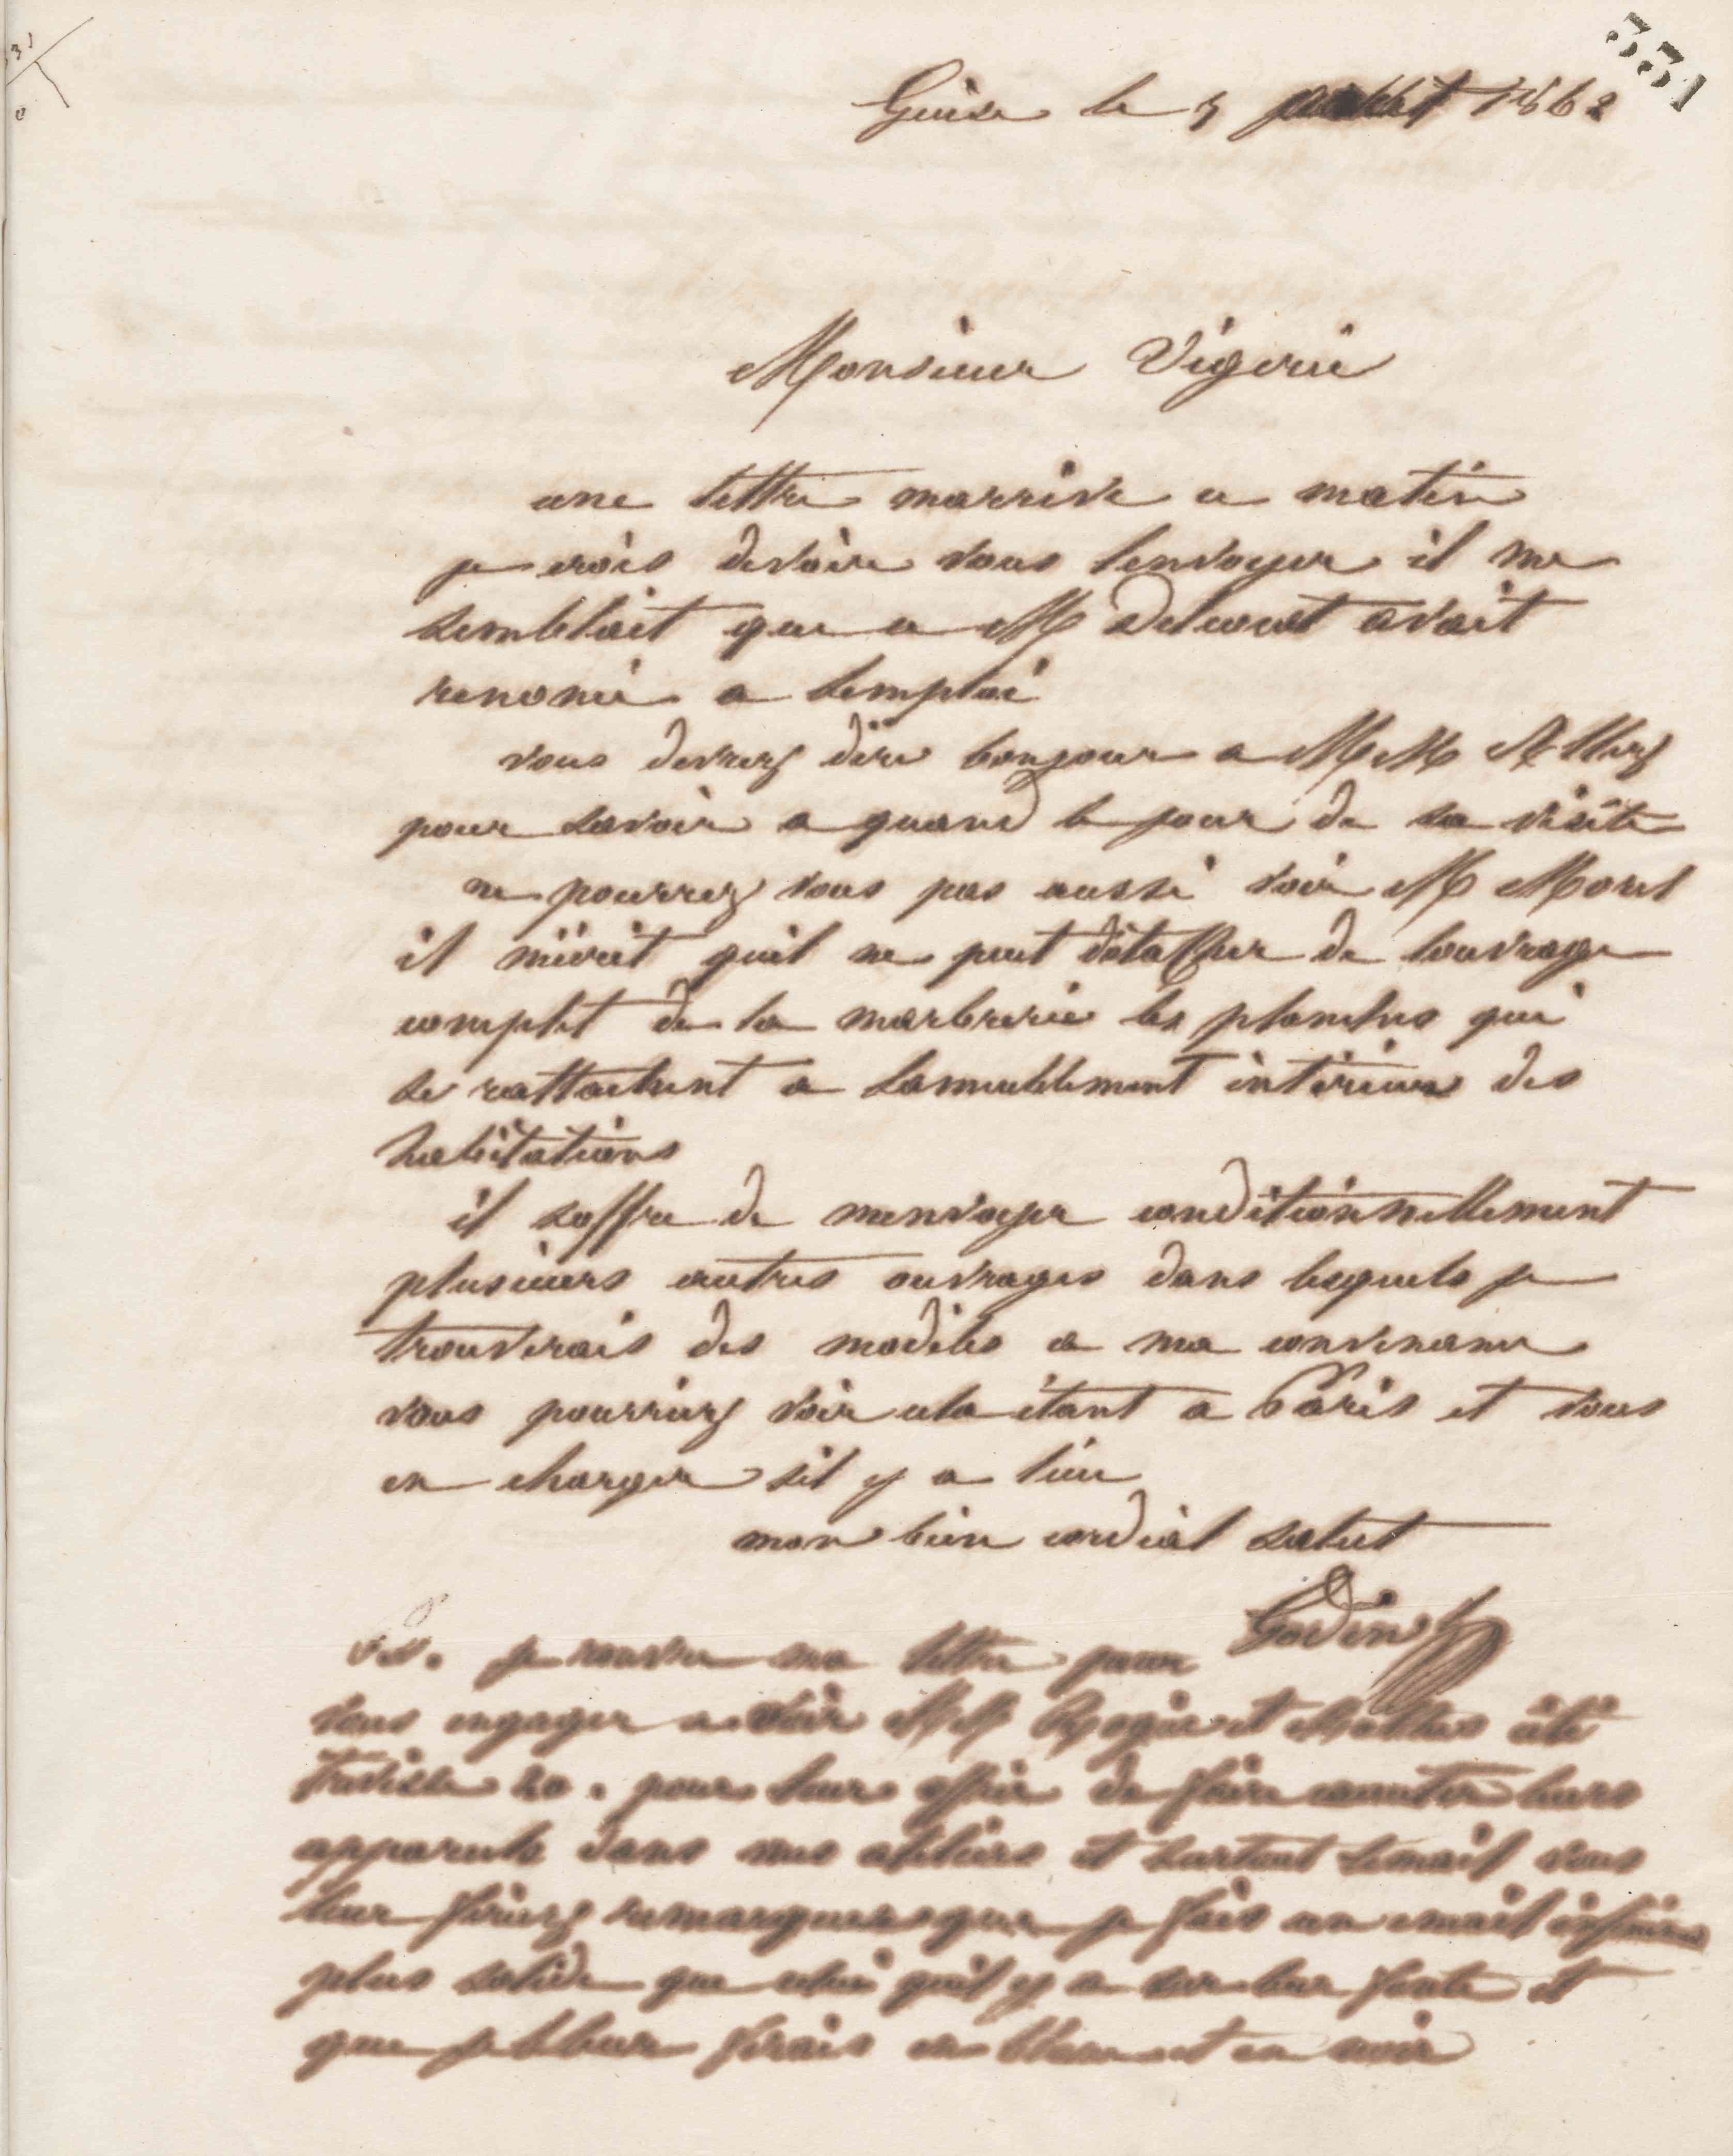 331
Guise le 5 juillet 1862
Monsieur Vigerie
une lettre marrive ce matin
je crois devoir vous lenvoyer il me
semblait que ce M Delcourt avait
renoncé a lemploi
vous devrez dire bonjour a MM
pour savoir a quand le jour de sa visite
ne pourrez vous pas aussi voir M Morel
il mécrit quil ne peut détacher de louvrage
complet de la marbrerie les planches qui
se rattachent a lameublement intérieur des
habitations
il soffre de menvoyer conditionnellement
plusieurs autres ouvrages dans lesquels je
trouverais des modèles a ma convenance
vous pourriez voir cela étant a Paris et vous
en charger sil y a lieu
mon bien cordial salut
Godin
P.S. je rouvre ma lettre pour
vous engager a voir MM Rogier et Mothes cité
Trévise 20. pour leur offrir de faire leurs
appareils dans nos ateliers et surtout lemail vous
leur feriez remarquer que je fais un émail
plus solide que celui quil y a sur leur fonte et
que je leur ferais en blanc et en noir